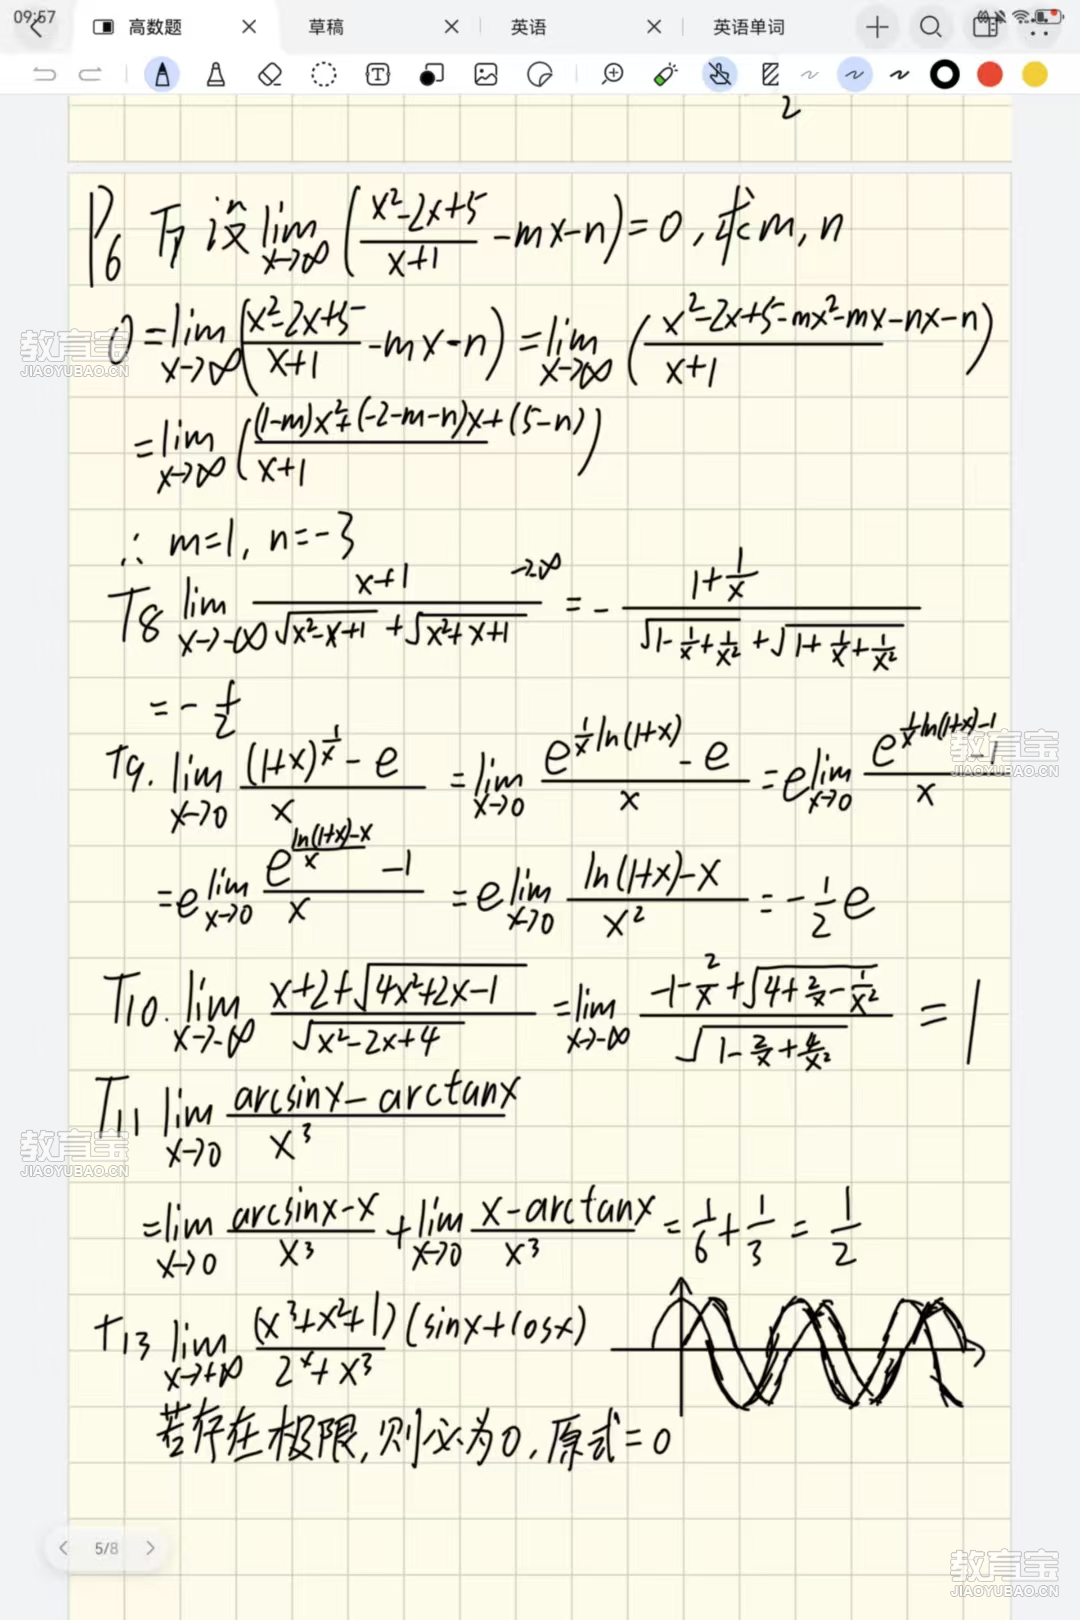 09:57
高数题
草稿
英语
英语单词
2
P6 T7 设 lim x→∞ ( (x²-2x+5)/(x+1) - mx - n ) = 0, 求 m, n
0 = lim x→∞ ( (x²-2x+5)/(x+1) - mx - n ) = lim x→∞ ( (x²-2x+5-mx²-mx-nx-n)/(x+1) )
= lim x→∞ ( ((1-m)x²+(-2-m-n)x+(5-n))/(x+1) )
∴ m=1, n=-3
T8 lim x→-∞ (x+1)/(√(x²-x+1) + √(x²+x+1)) = - (1+1/x)/(√(1-1/x+1/x²) + √(1+1/x+1/x²))
= - 1/2
T9. lim x→0 ((1+x)^(1/x) - e)/x = lim x→0 (e^(1/x ln(1+x)) - e)/x = e lim x→0 (e^(1/x ln(1+x)-1) - 1)/x
= e lim x→0 (e^((ln(1+x)-x)/x) - 1)/x = e lim x→0 (ln(1+x)-x)/x² = - 1/2 e
T10. lim x→-∞ (x+2+√(4x²+2x-1))/√(x²-2x+4) = lim x→-∞ (-1-2/x+√(4+2/x-1/x²))/√(1-2/x+4/x²) = 1
T11 lim x→0 (arcsinx - arctanx)/x³
= lim x→0 (arcsinx-x)/x³ + lim x→0 (x-arctanx)/x³ = 1/6 + 1/3 = 1/2
T13 lim x→+∞ (x³+x²+1)/(2^x+x³) (sinx+cosx)
若存在极限, 则必为0, 原式=0
5/8
教育宝
JIAOYUBAO.CN
教育宝
JIAOYUBAO.CN
教育宝
JIAOYUBAO.CN
教育宝
JIAOYUBAO.CN